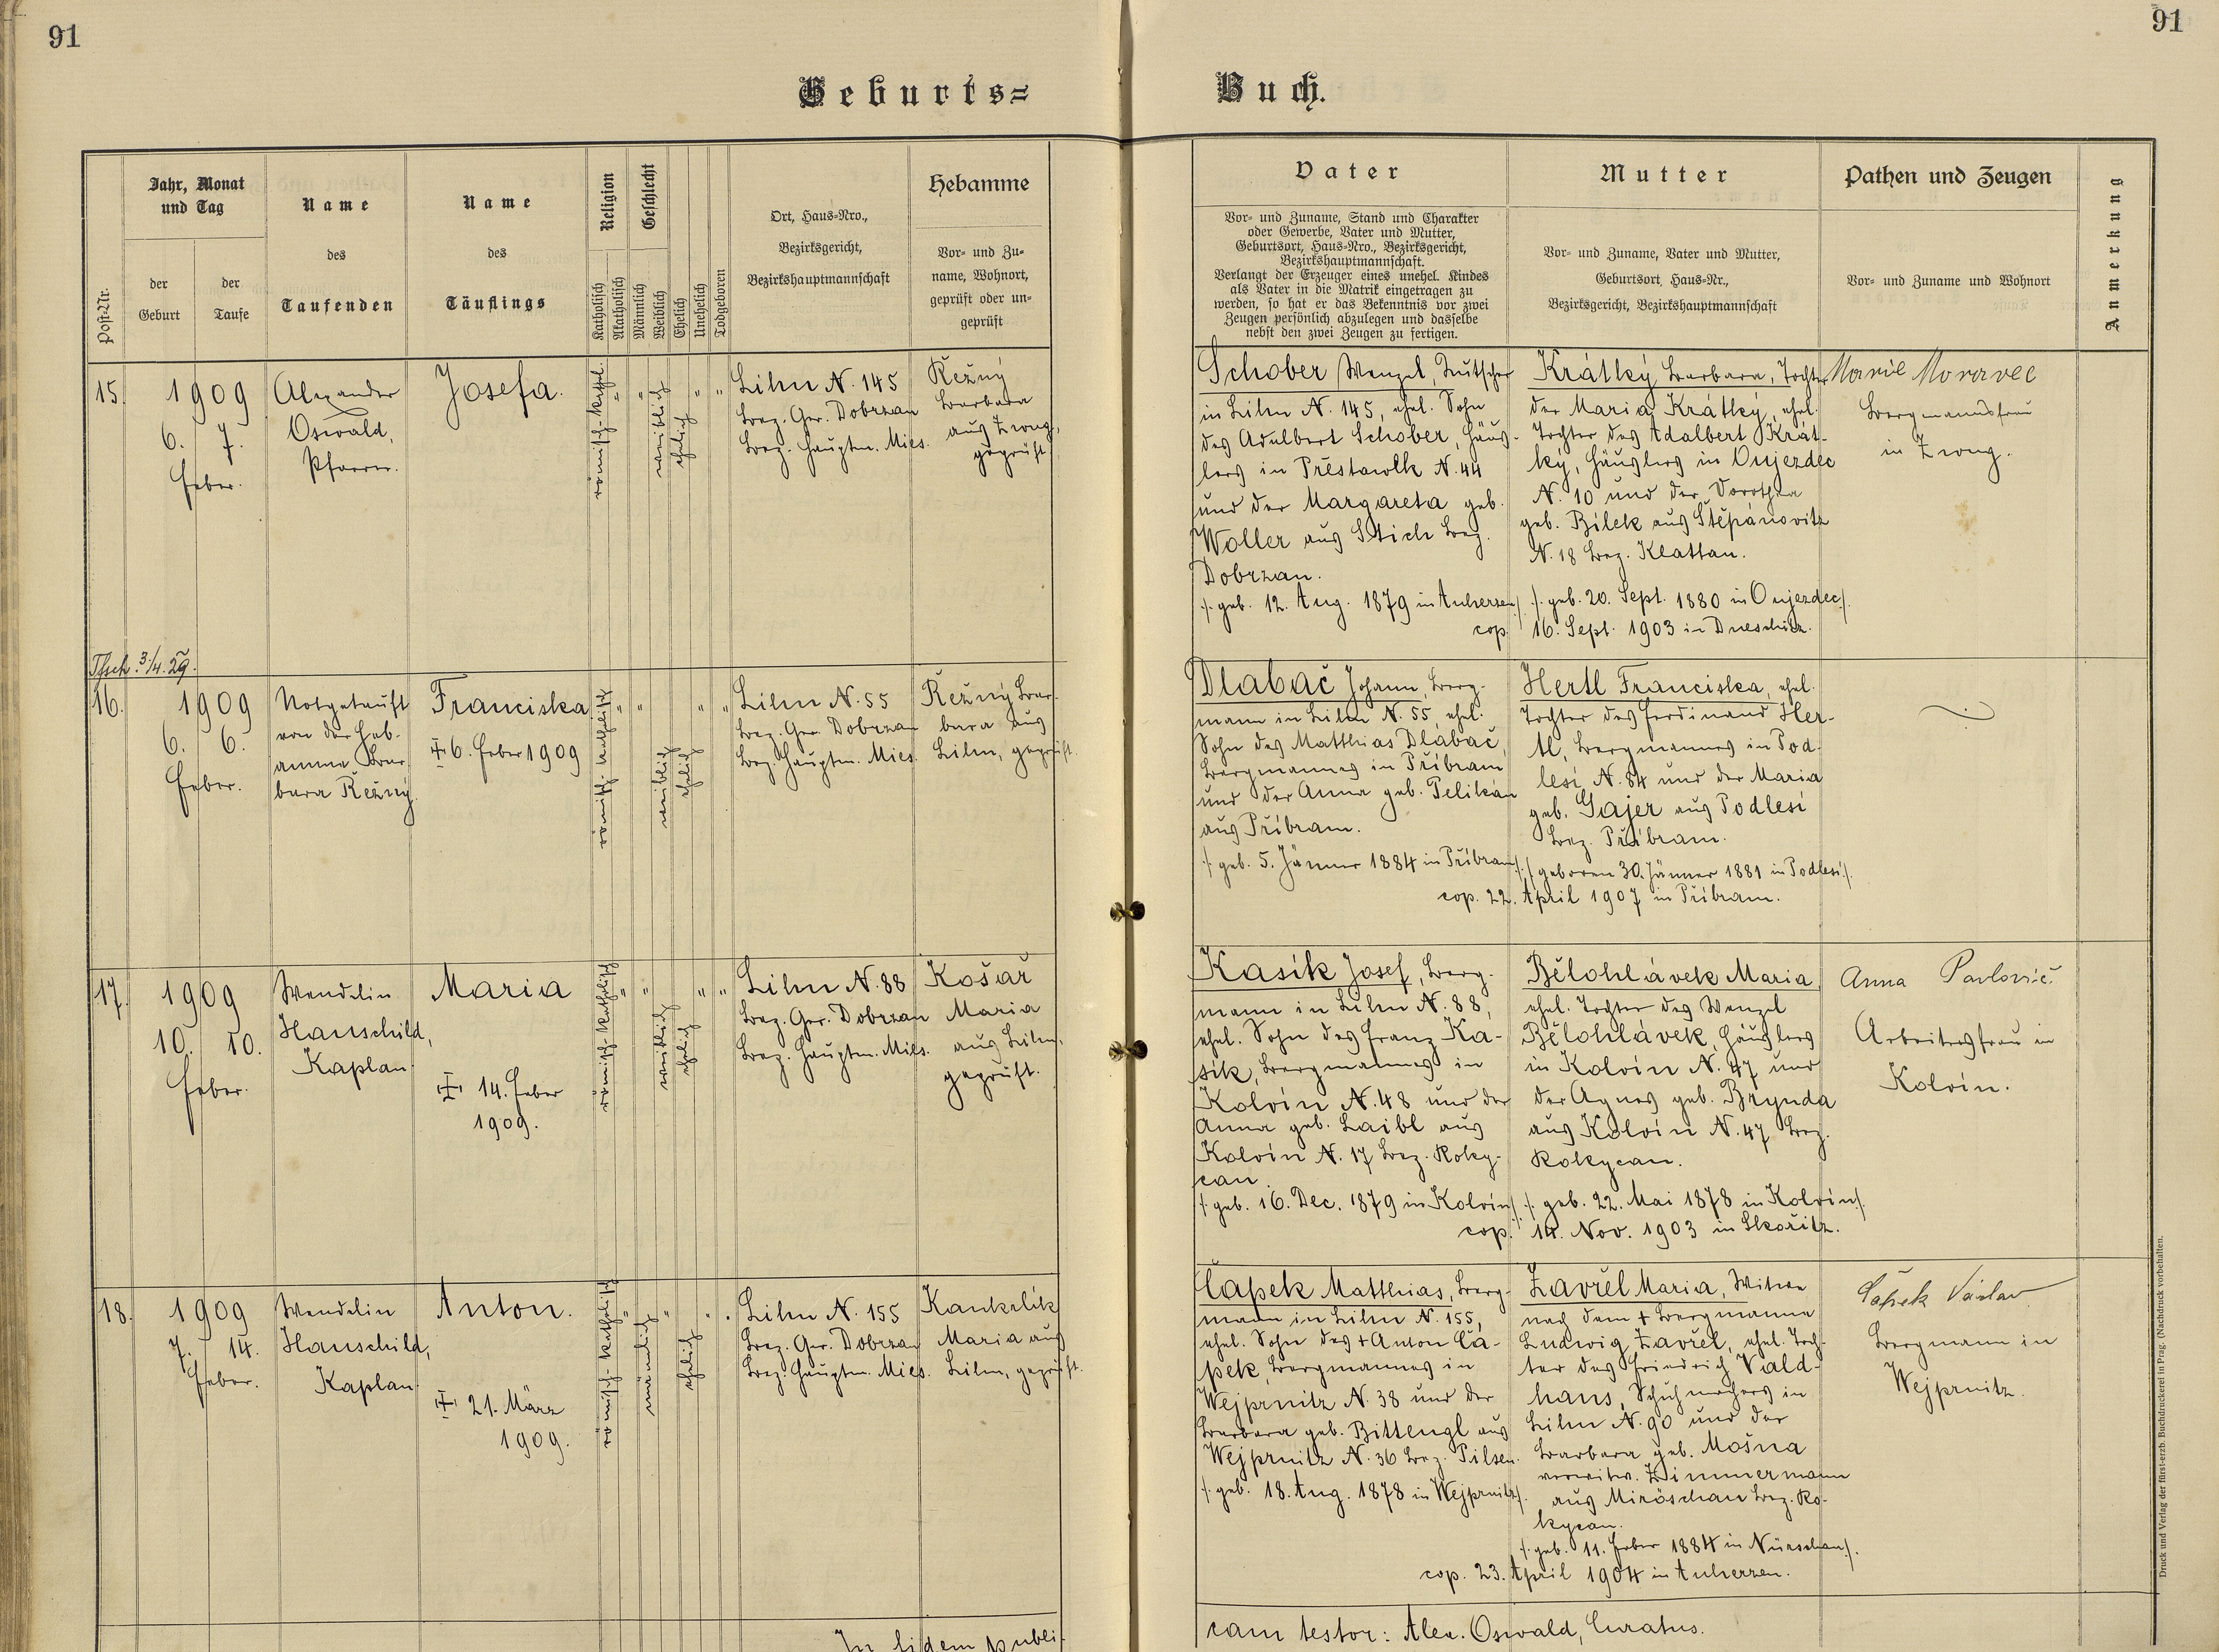 91
91
Geburts=
Buch.
Post-Nr.
Jahr, Monat
und Tag
der
Geburt
der
Taufe
Name
des
Taufenden
Name
des
Täuflings
Religion
Katholisch
Akatholisch
Geschlecht
Männlich
Weiblich
Ehelich
Unehelich
Todgeboren
Ort, Haus=Nro.,
Bezirksgericht,
Bezirkshauptmannschaft
Hebamme
Vor= und Zu=
name, Wohnort,
geprüft oder un=
geprüft
Vater
Vor= und Zuname, Stand und Charakter
oder Gewerbe, Vater und Mutter,
Geburtsort, Haus=Nro., Bezirksgericht,
Bezirkshauptmannschaft.
Verlangt der Erzeuger eines unehel. Kindes
als Vater in die Matrik eingetragen zu
werden, so hat er das Bekenntnis vor zwei
Zeugen persönlich abzulegen und dasselbe
nebst den zwei Zeugen zu fertigen.
Mutter
Vor= und Zuname, Vater und Mutter,
Geburtsort, Haus=Nr.,
Bezirksgericht, Bezirkshauptmannschaft
Pathen und Zeugen
Vor= und Zuname und Wohnort
Anmerkung
15.
1909
6. 7.
Feber.
Alexander
Oswald,
Pfarrer.
Josefa.
römisch-kathol.
" "
weiblich
ehelich
" "
Lihn N. 145
Bez. Ger. Dobrzan
Bez. Hauptm. Mies.
Řežný
Barbara
aus Zwug,
geprüft.
Schober Wenzel, Kutscher
in Lihn N. 145, ehel. Sohn
des Adalbert Schober, Häus-
lers in Přestawlk N. 44
und der Margareta geb.
Woller aus Stich Bez.
Dobrzan.
/: geb. 12. Aug. 1879 in Auherzen :/
Krátký Barbara, Tochter
der Maria Krátký, ehel.
Tochter des Adalbert Krát-
ký, Häuslers in Oujezdec
N. 10 und der Dorothea
geb. Bílek aus Štěpánovitz
N. 18 Bez. Klattau.
/: geb. 20. Sept. 1880 in Oujezdec :/
cop. 16. Sept. 1903 in Dneschitz.
Marie Moravec
Bergmannsfrau
in Zwug.
3./4. 29.
16.
1909
6. 6.
Feber.
Notgetauft
von der Heb-
amme Bar-
bara Řežný.
Franciska
‡ 6. Feber 1909
römisch-katholisch
" "
weiblich
ehelich
" "
Lihn N. 55
Bez. Ger. Dobrzan
Bez. Hauptm. Mies.
Řežný Bar-
bara aus
Lihn, geprüft.
Dlabač Johann, Berg-
mann in Lihn N. 55, ehel.
Sohn des Matthias Dlabač,
Bergmannes in Příbram
und der Anna geb. Pelikán
aus Příbram.
/: geb. 5. Jänner 1884 in Příbram :/
Hertl Franciska, ehel.
Tochter des Ferdinand Her-
tl, Bergmannes in Pod-
lesí N. 84 und der Maria
geb. Gajer aus Podlesí
Bez. Příbram.
/: geboren 30. Jänner 1881 in Podlesí :/
cop. 22. April 1907 in Příbram.
17.
1909
10. 10.
Feber.
Wendelin
Hauschild,
Kaplan.
Maria
‡ 14. Feber
1909.
römisch-katholisch
" "
weiblich
ehelich
" "
Lihn N. 88
Bez. Ger. Dobrzan
Bez. Hauptm. Mies.
Košař
Maria
aus Lihn,
geprüft.
Kasík Josef, Berg-
mann in Lihn N. 88,
ehel. Sohn des Franz Ka-
sík, Bergmannes in
Kolvín N. 48 und der
Anna geb. Laibl aus
Kolvín N. 17 Bez. Roky-
can.
/: geb. 16. Dec. 1879 in Kolvín :/
Bělohlávek Maria,
ehel. Tochter des Wenzel
Bělohlávek, Häuslers
in Kolvín N. 47 und
der Agnes geb. Brynda
aus Kolvín N. 47 Bez.
Rokycan.
/: geb. 22. Mai 1878 in Kolvín :/
cop. 14. Nov. 1903 in Skořitz.
Anna Pavlovič.
Arbeitersfrau in
Kolvín.
18.
1909
7. 14.
Feber.
Wendelin
Hauschild,
Kaplan.
Anton.
‡ 21. März
1909.
römisch-katholisch
"
männlich
"
ehelich
" "
Lihn N. 155
Bez. Ger. Dobrzan
Bez. Hauptm. Mies.
Kankrlík
Maria aus
Lihn, geprüft.
Čapek Matthias, Berg-
mann in Lihn N. 155,
ehel. Sohn des + Anton Ča-
pek, Bergmannes in
Wejprnitz N. 38 und der
Barbara geb. Bittengl aus
Wejprnitz N. 36 Bez. Pilsen.
/: geb. 18. Aug. 1878 in Wejprnitz :/
Zavřel Maria, Witwe
nach dem + Bergmanne
Ludwig Zavřel, ehel. Toch-
ter des Friedrich Vald-
hans, Schuhmachers in
Lihn N. 90 und der
Barbara geb. Mošna
verwitw. Zimmermann
aus Miröschau Bez. Ro-
kycan.
/: geb. 11. Feber 1884 in Nürschan :/
cop. 23. April 1904 in Auherzen.
Čapek Václav
Bergmann in
Wejprnitz.
In fidem publi-
cam testor: Alex. Oswald, Curatus.
Druck und Verlag der fürst-erzb. Buchdruckerei in Prag. (Nachdruck vorbehalten.